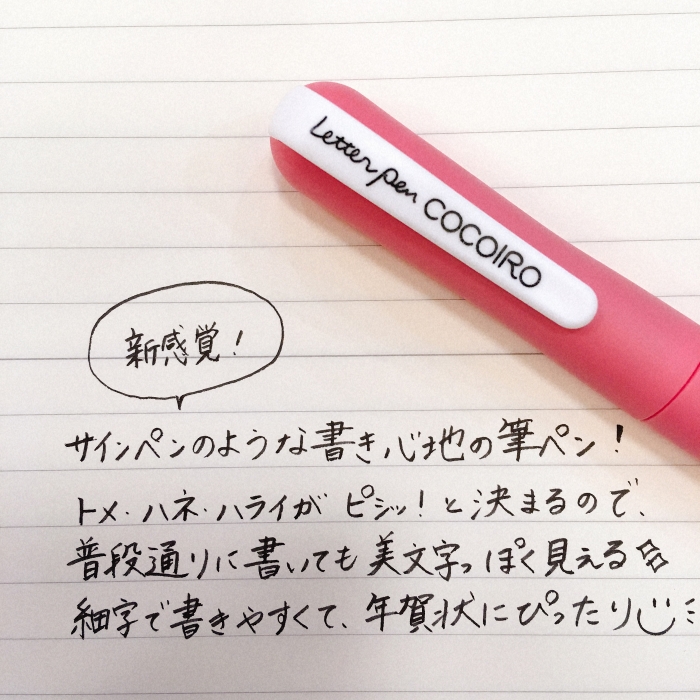 Letter pen COCOIRO
新感覚!
サインペンのような書き心地の筆ペン!
トメ・ハネ・ハライが ピシッ!と決まるので、
普段通りに書いても美文字っぽく見える☆
細字で書きやすくて、年賀状にぴったり